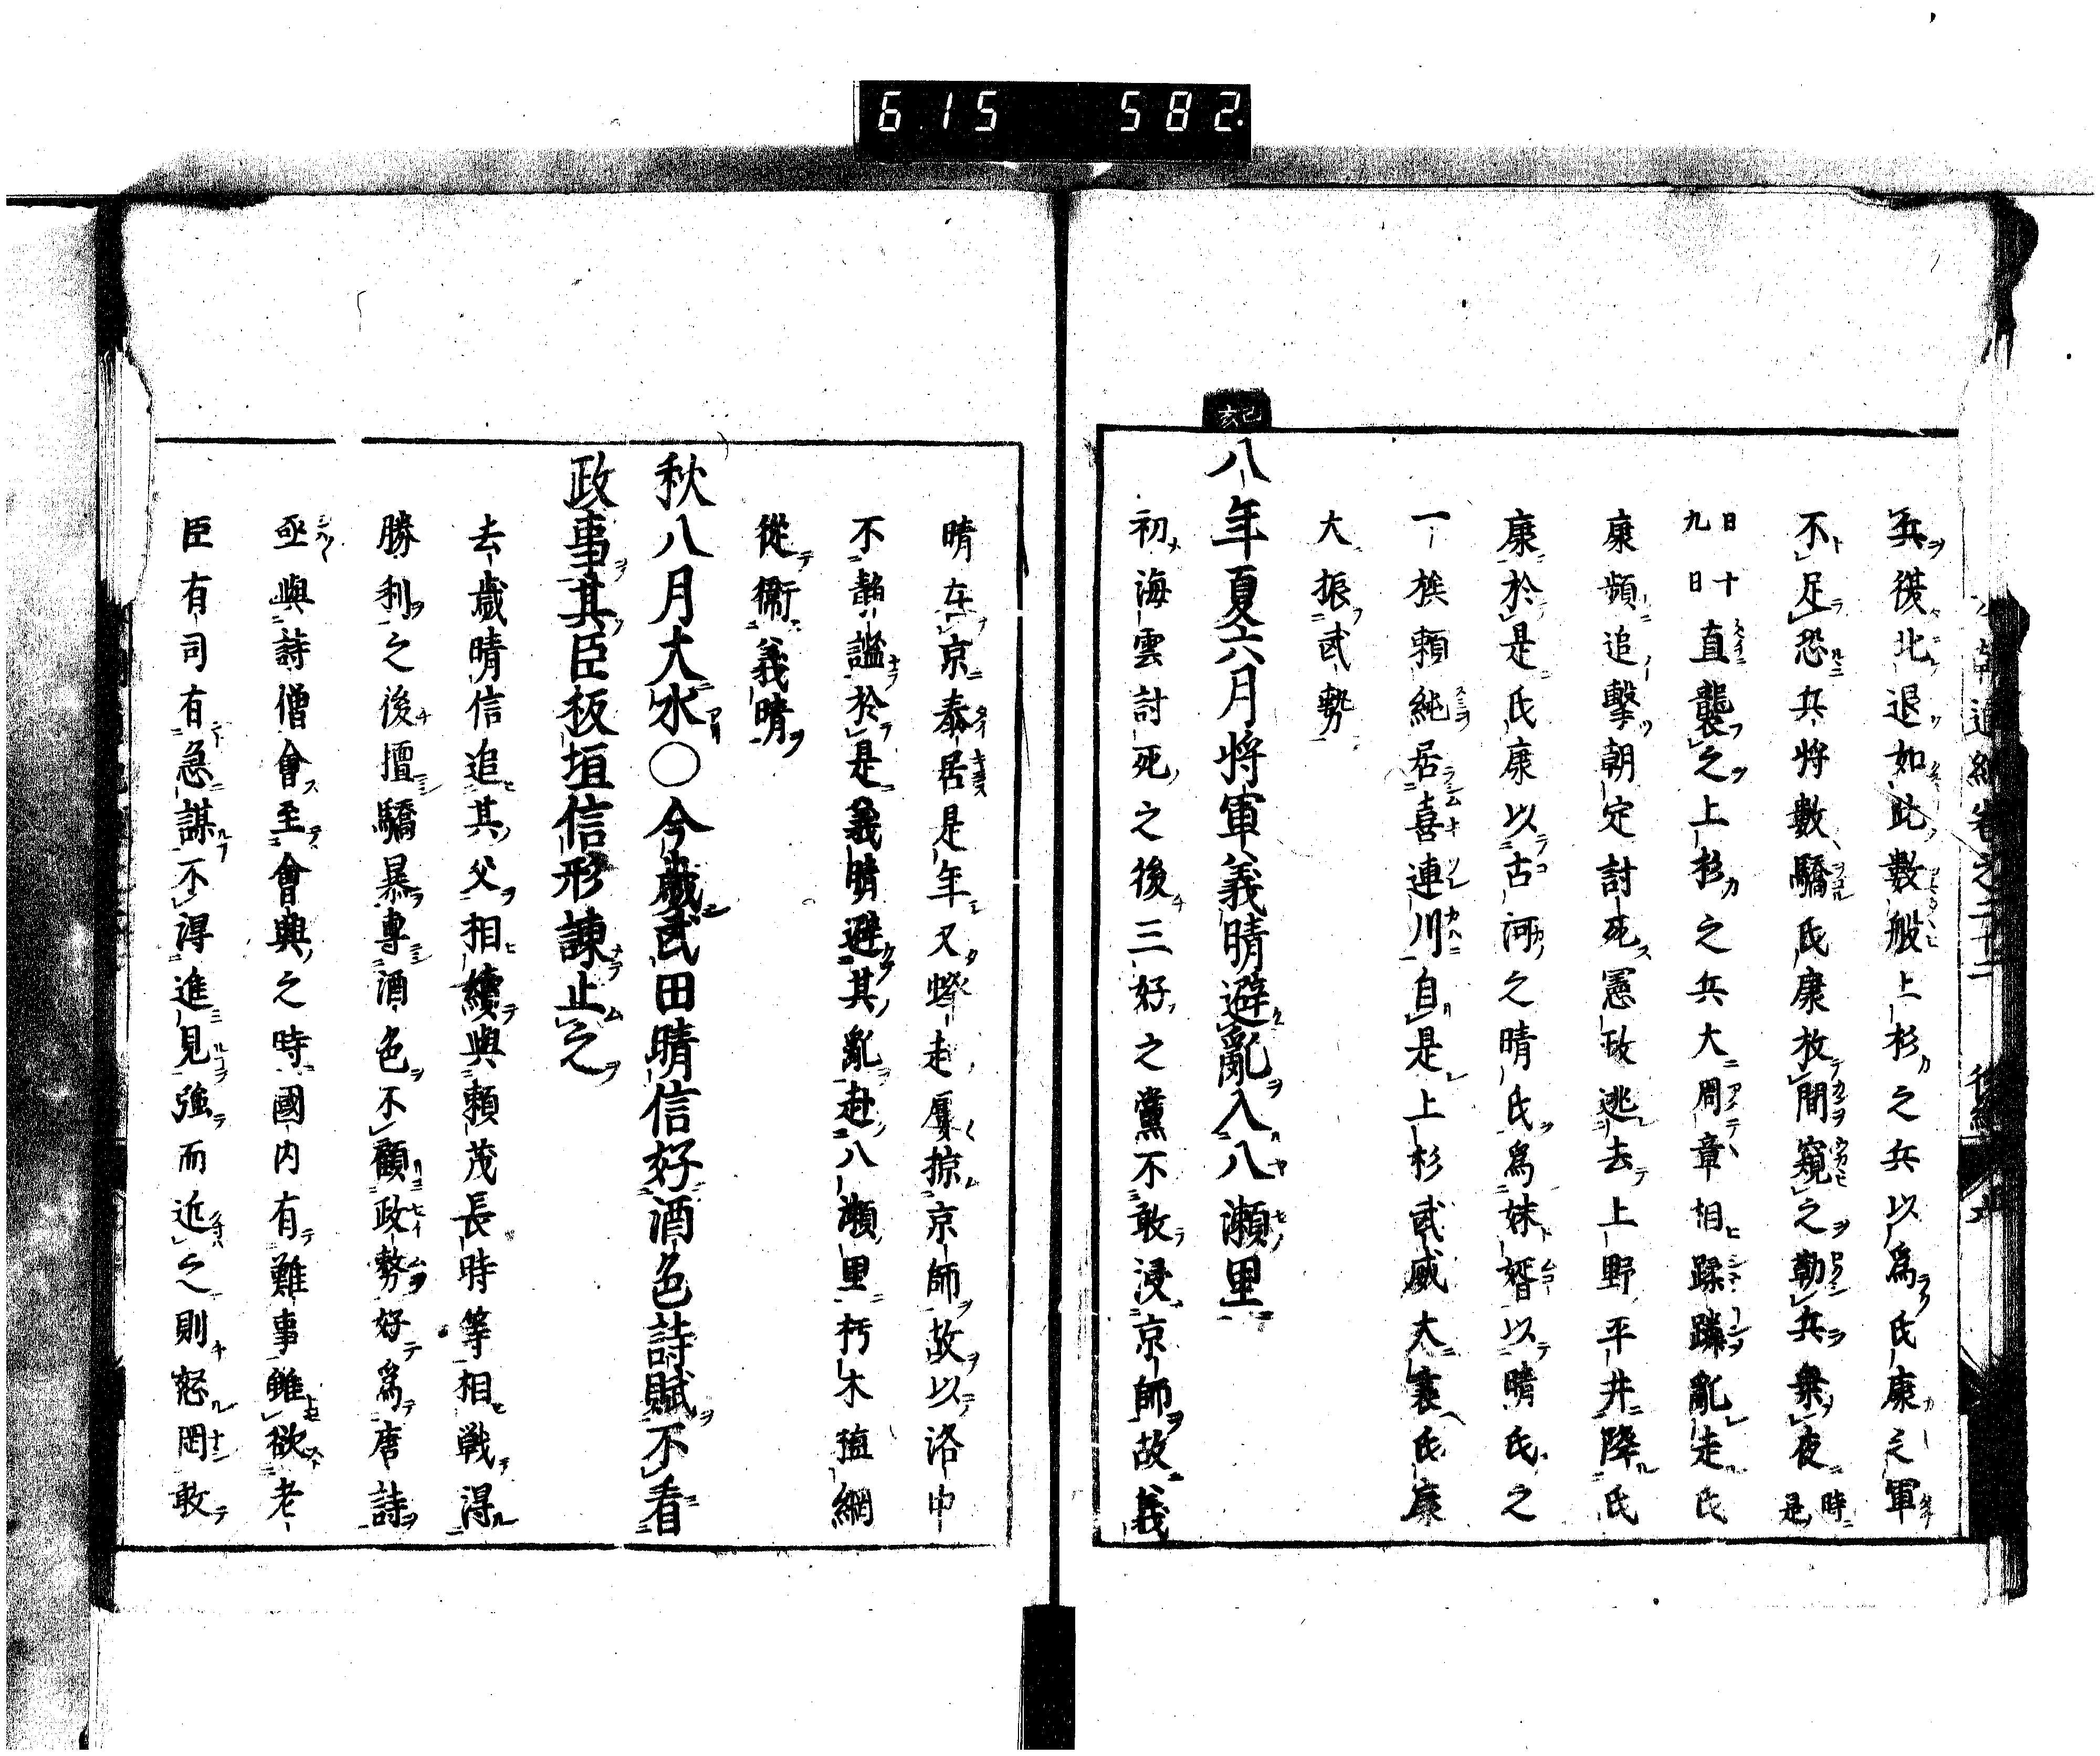 615 582
兵後北退如此數般上杉之兵以爲氏康之軍
不足恐兵將數驕氏康放間窺之勒兵衆夜時是
九日十日直襲之上杉之兵大周章相蹂躪亂走氏
康頻追擊朝定討死憲政逃去上野平井降氏
康於是氏康以古河之晴氏爲妹婿以晴氏之
一族賴純居喜連川自是上杉武威大衰氏康
大振武勢
己亥
八年夏六月將軍義晴避亂入八瀬里
初海雲討死之後三好之黨不敢浸京師故義
晴在京泰居是年又蜂走屢掠京師故以洛中
不靜謐於是義晴避其亂赴八瀬里朽木稙綱
從衞義晴
秋八月大水○今歲武田晴信好酒色詩賦不看
政事其臣板垣信形諫止之
去歲晴信追其父相續與賴茂長時等相戰得
勝利之後擅驕暴專酒色不顧政勢好爲唐詩
亟與詩僧會至會興之時國內有難事雖欲老
臣有司有急謀不得進見強而近之則怒罔敢